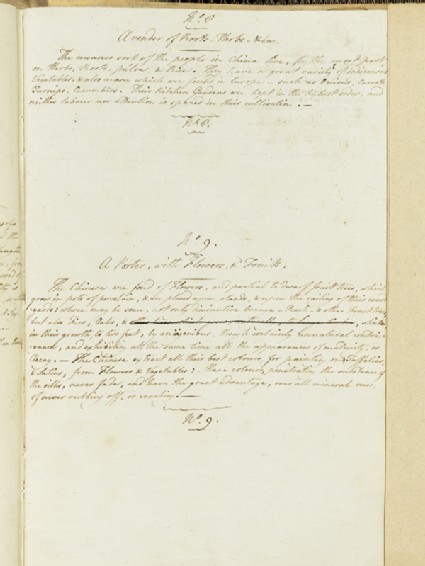 No. 8
A vender of Roots, Herbs &ca.
The meaner sort of the people in China live, for the most part
on Herbs, Roots, pulse, & Rice. They have a great variety of
Vegetables & also many which are found in Europe - such as Onions, Carrots
Turnips, Cucumbers. Their Kitchen Gardens are kept in the highest order, and
neither labour nor attention is spared in their cultivation. —
No. 8.
No. 9.
A Porter, with Flowers, & Fruits.
The Chinese are fond of Flowers, and partial to dwarf fruit trees, which
grow in pots of porcelain, & are placed upon stands, & upon the railing of their court
yards: where may be seen, not only diminutive Orange, Peach, & other Fruit trees,
but also Firs, Oaks, &
in their growth to two feet, by
and exhibiting at the same time all the appearances of maturity, or
decay. — The Chinese extract all their best colours, for painting
from Flowers & Vegetables: these colours, penetrating the substance of
the silks, never fade, and have the great advantage, over all mineral ones,
of never rubbing off, or
No. 9.